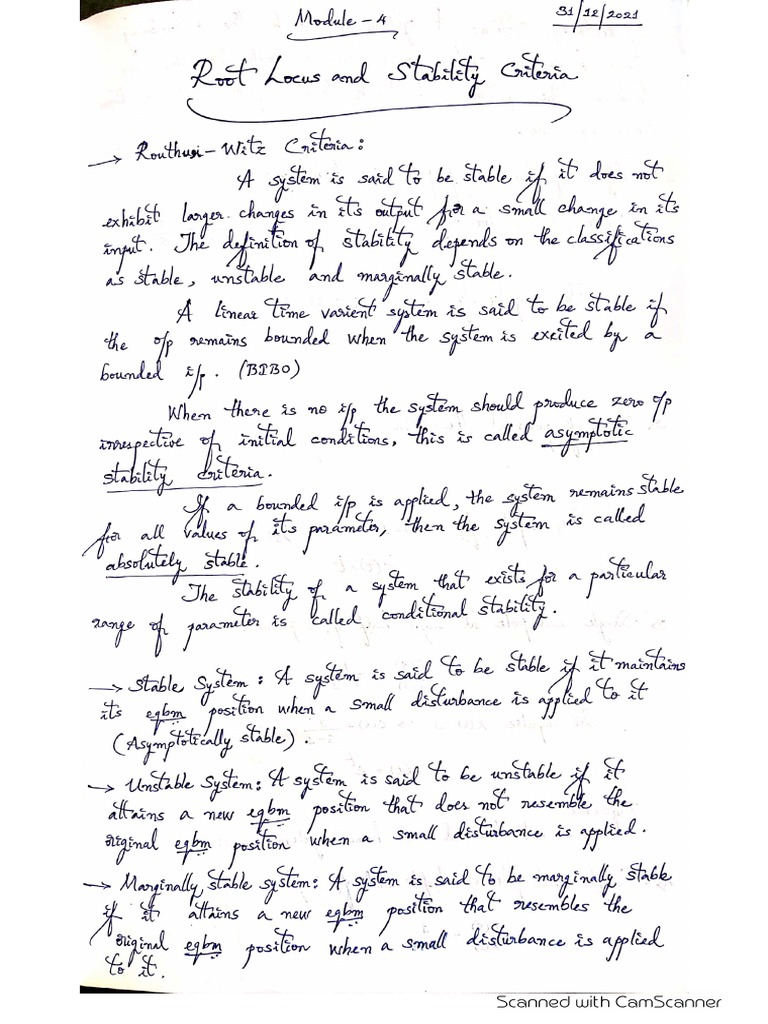 Module - 4
31/12/2021
Root Locus and Stability Criteria
→ Routhusi-Witz Criteria:
A system is said to be stable if it does not
exhibit larger changes in its output for a small change in its
input. The definition of stability depends on the classifications
as stable, unstable and marginally stable.
A linear time varient system is said to be stable if
the o/p remains bounded when the system is excited by a
bounded i/p. (BIBO)
When there is no i/p the system should produce zero o/p
irrespective of initial conditions, this is called asymptotic
stability criteria.
If a bounded i/p is applied, the system remains stable
for all values of its parameter, then the system is called
absolutely stable.
The stability of a system that exists for a particular
range of parameter is called conditional stability.
→ Stable System: A system is said to be stable if it maintains
its eqbm position when a small disturbance is applied to it
(Asymptotically stable).
→ Unstable System: A system is said to be unstable if it
attains a new eqbm position that does not resemble the
original eqbm position when a small disturbance is applied.
→ Marginally stable system: A system is said to be marginally stable
if it attains a new eqbm position that resembles the
original eqbm position when a small disturbance is applied
to it.
Scanned with CamScanner